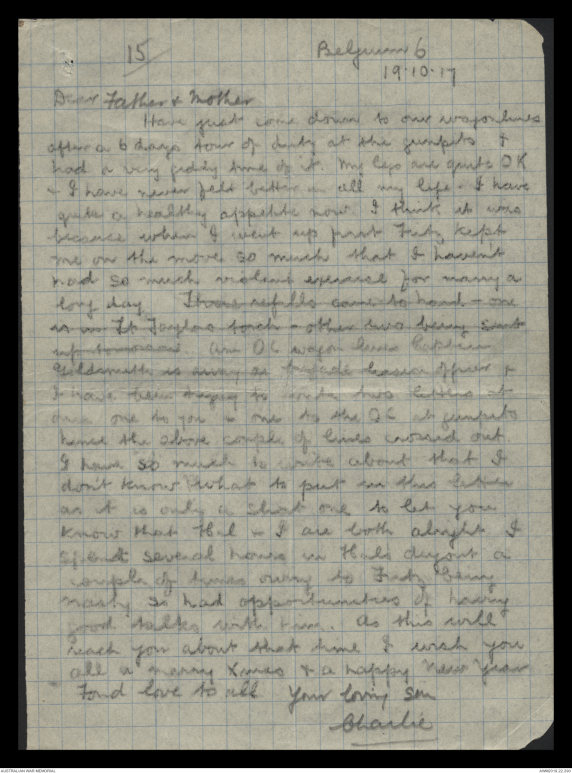 15
Belgium 6
19.10.17
Dear Father & Mother
Have just come down to our wagonlines
after a 6 days tour of duty at the gunpits &
had a very giddy time of it. My legs are quite OK
& I have never felt better in all my life. I have
quite a healthy appetite now. I think it was
because when I went up first Fritz kept
me on the move so much that I haven't
had so much violent exercise for many a
long day. Three refills came to hand - one
is in Lt Taylors torch - other two being sent
up tomorrow. Am OC wagon lines Captain
Goldsmith is away as brigade liaison officer &
I have been trying to write two letters at
once one to you & one to the OC at gunpits
hence the above couple of lines crossed out
I have so much to write about that I
don't know what to put in this letter
as it is only a short one to let you
know that Hal & I are both alright. I
spent several hours in Hals dugout a
couple of times owing to Fritz being
nasty so had opportunities of having
good talks with him. As this will
reach you about that time I wish you
all a merry Xmas & a happy New Year
Fond love to all Your loving son
Charlie
AUSTRALIAN WAR MEMORIAL